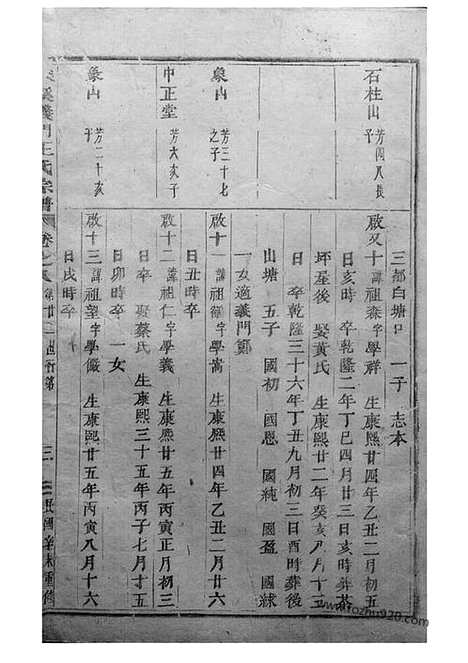 三都白塘口 一子 志本
石柱山 芳四八長子
啟又十 諱祖森字學祥 生康熙廿四年乙丑二月初五
日亥時 卒乾隆二年丁巳四月廿三日亥時葬
坪屋後 娶黃氏 生康熙廿二年癸亥八月十三
日 卒乾隆三十六年丁丑九月初三日酉時葬後
山塘 五子 國初 國恩 國純 國盈 國球
一女適義門鄭
象山 芳三十七之子
啟十一 諱祖 字學嵩 生康熙廿四年乙丑二月廿六
日丑時卒
中正堂 芳六亥子
啟十二 諱祖仁字學義 生康熙廿五年丙寅正月初三
日卒 娶蔡氏 生康熙三十五年丙子七月十
日卯時卒 一女
象山 芳二十亥子
啟十三 諱祖望字學儼 生康熙廿五年丙寅八月十六
日戌時卒
溪義門王氏宗譜 卷之 第廿一世行第 三 民國辛未重修
www.rozhu920.com